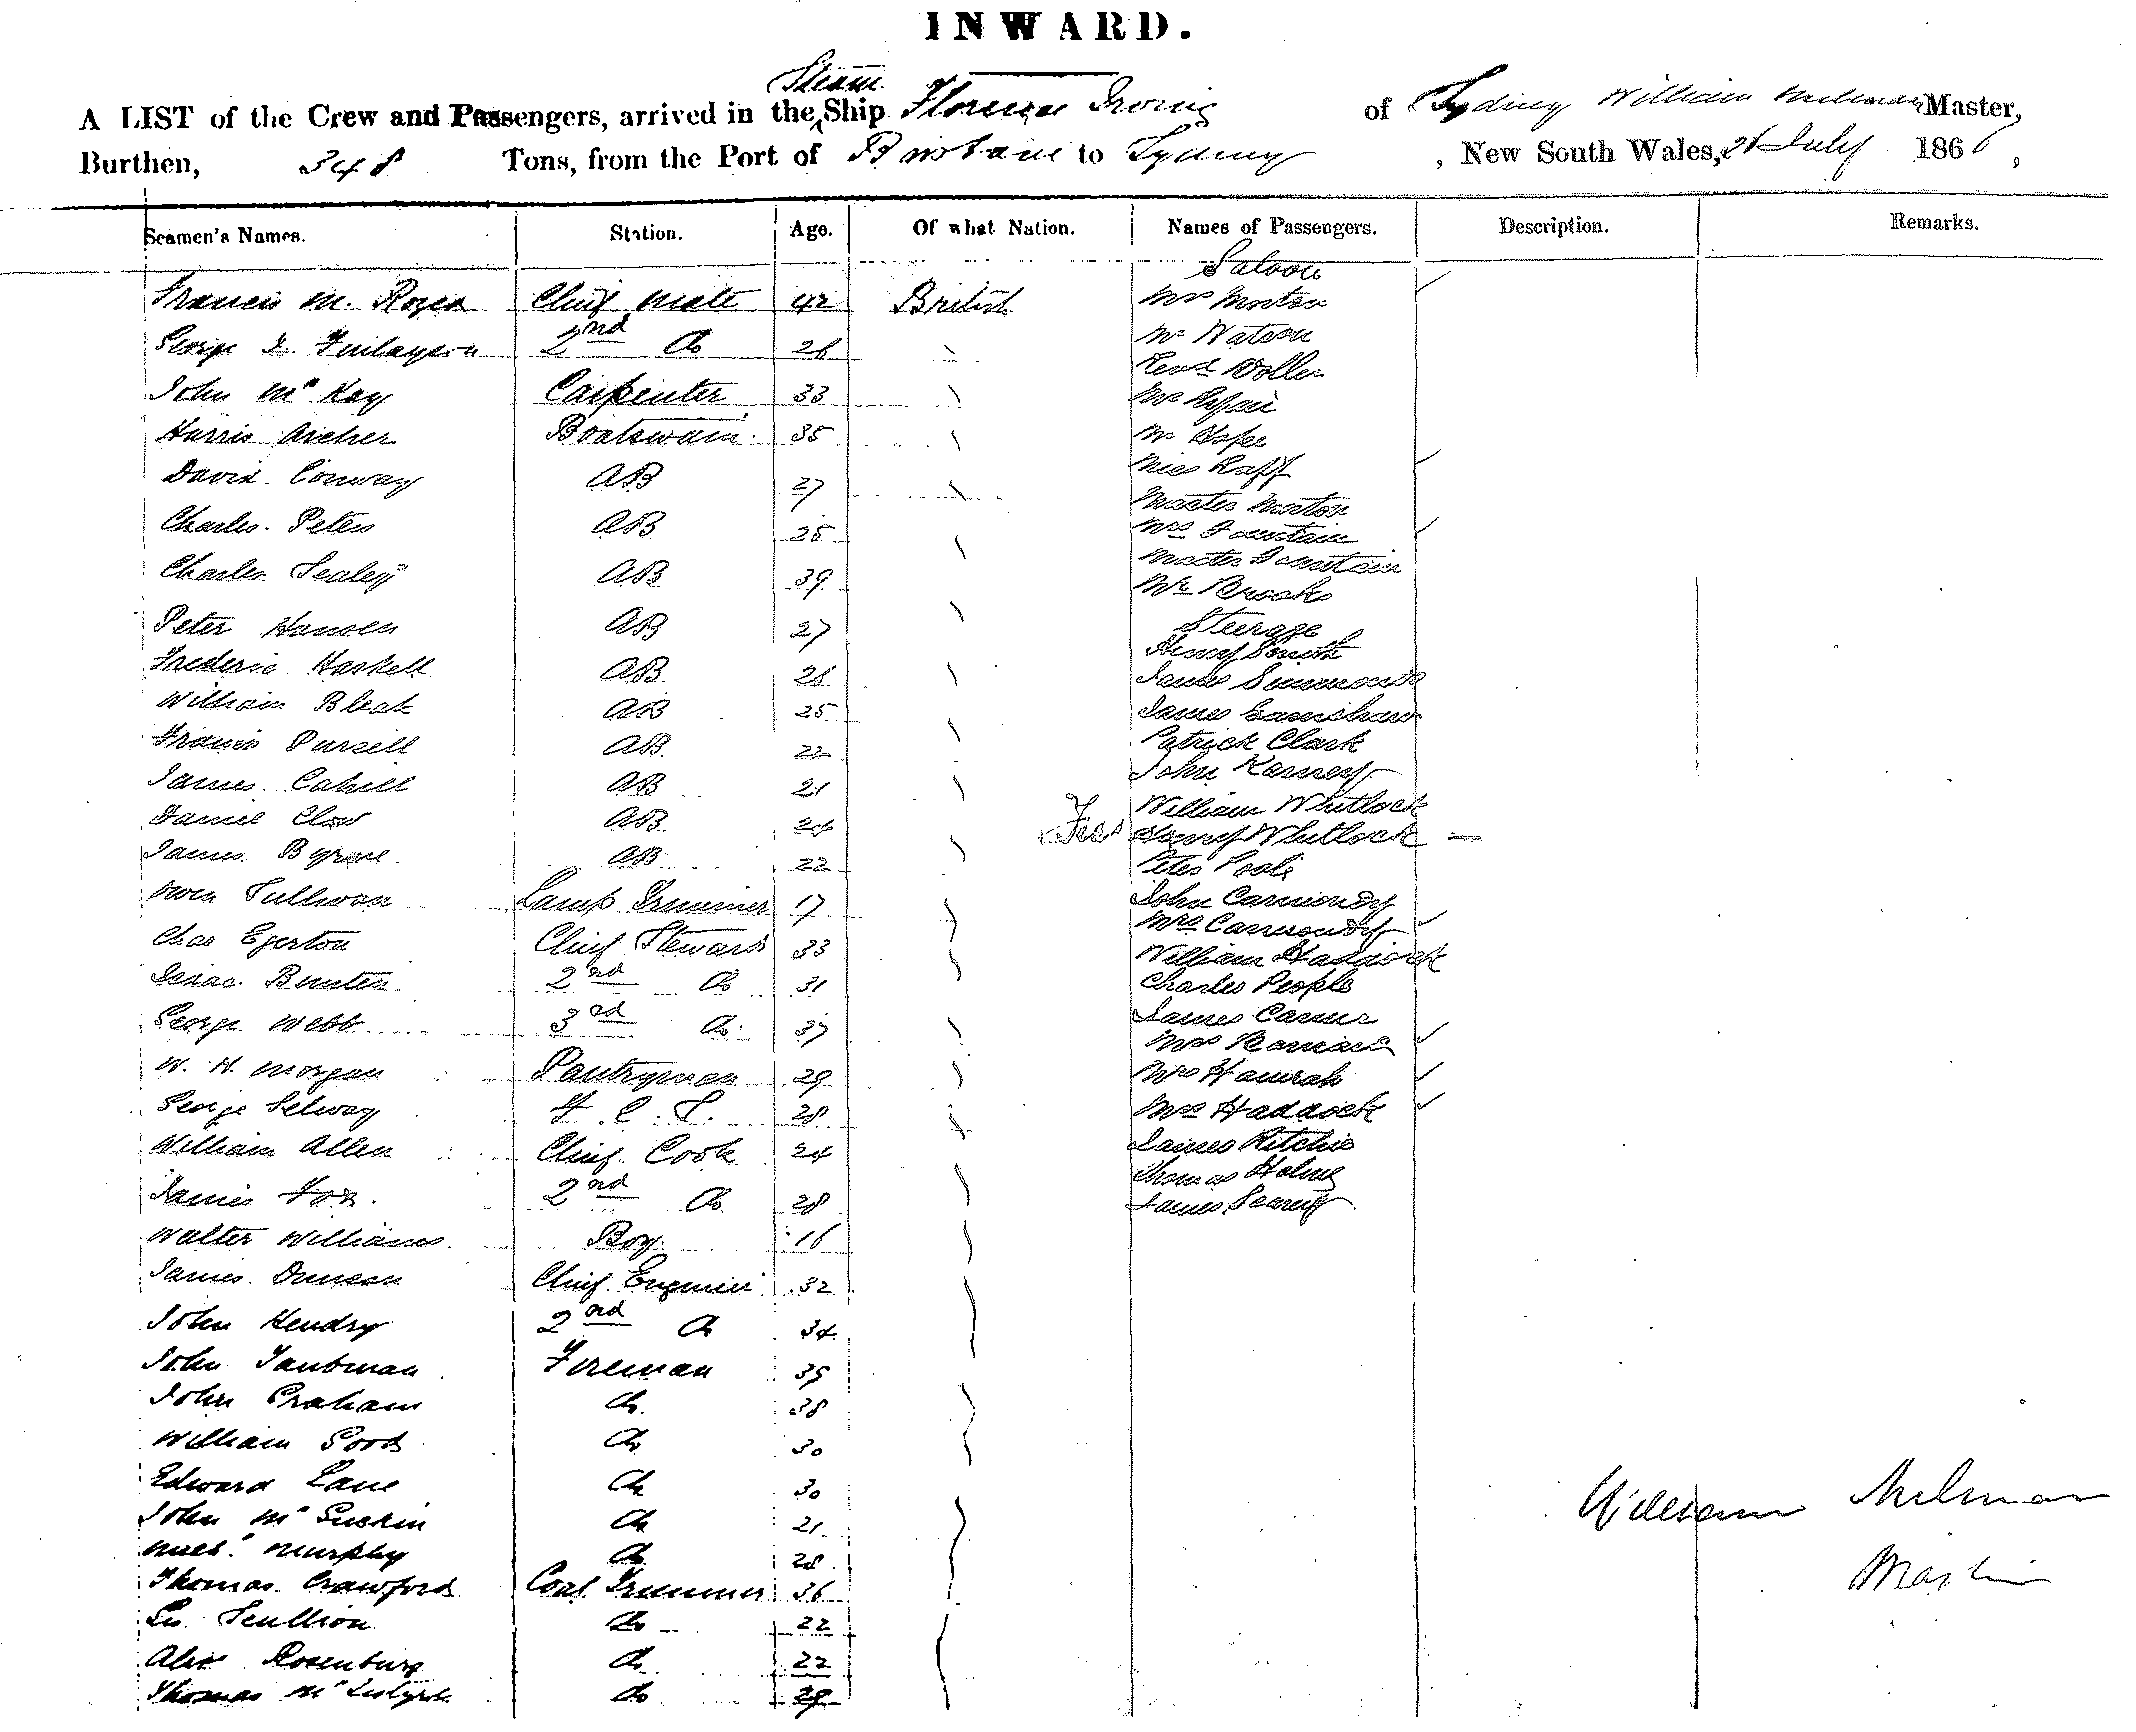 INWARD.
Steam
A LIST of the Crew and Passengers, arrived in the Ship Florence Irving of Sydney William Milman Master,
Burthen, 348 Tons, from the Port of Brisbane to Sydney, New South Wales, 21 July 1866,
Seamen's Names. Station. Age. Of what Nation. Names of Passengers. Description. Remarks.
Saloon
Francis M. Rozea Chief Mate 42 British Mrs Morton
Mr Watson
George Finlayson 2nd Do 26
Revd Voller
John McKay Carpenter 33 Mr
Harris Archer Boatswain 35 Mr
Miss Raff
David Conway AB 27
Master Morton
Charles Peters AB 25 Mrs Fountain
Master Fountain
Charles Sealey AB 39 Mr Brooks
Steerage
Peter Hansen AB 27 Henry Smith
Frederic Haskell AB 26 James Simmonds
William Bleak AB 25 James Earnshaw
Francis Pursell AB 22 Patrick Clark
John Karney
James Cahill AB 21
William Whitlock
Daniel Clow AB 24 Henry Whitlock
James Byrne AB 22 Peter Poole
Owen Sullivan Lamp Trimmer 17 John Carmondy
Mrs Carmondy
Chas Egerton Chief Steward 33 William Haddock
Isaac Bunten 2nd Do 31 Charles People
George Webb 3rd Do 37 James Carnes
Mrs
W. H. Morgan Pantryman 29 Mrs Hanrah
George Selway F. C. S. 28 Mrs Haddock
William Allen Chief Cook 24 James Ritchie
Thomas Holme
James Fox 2nd Do 28 James Searing
Walter Williams Boy 16
James Duncan Chief Engineer 32
John Hendry 2nd Do 34
John Taubman Fireman 35
John Graham Do 38
William Good Do 30
Edward Lane Do 30
William Milman
John McGuckin Do 21
Michl Murphy Do 28
Master
Thomas Crawford Coal Trimmer 36
Scullion Do 22
Alex Rosenburg Do 22
Thomas Do 29